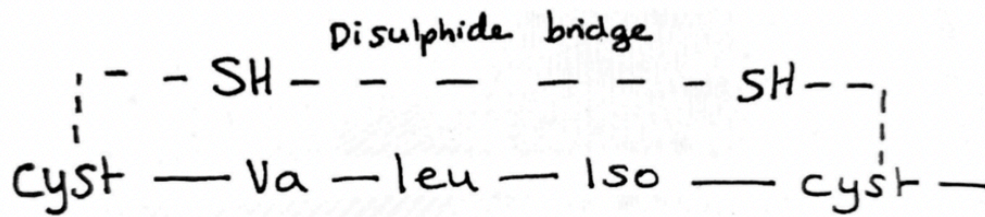 Disulphide bridge
SH SH
Cyst — Va — leu — Iso — cyst —